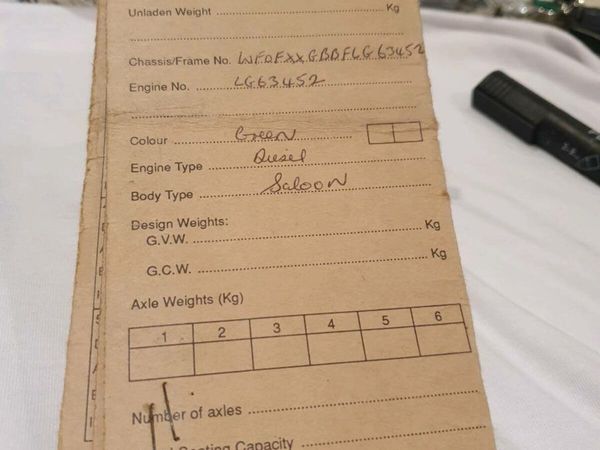 Unladen Weight Kg
Chassis/Frame No. WFOFXXGBBFLG63452
Engine No. LG63452
Colour Green
Engine Type Diesel
Body Type Saloon
Design Weights:
G.V.W. Kg
G.C.W. Kg
Axle Weights (Kg)
1 2 3 4 5 6
Number of axles
Seating Capacity